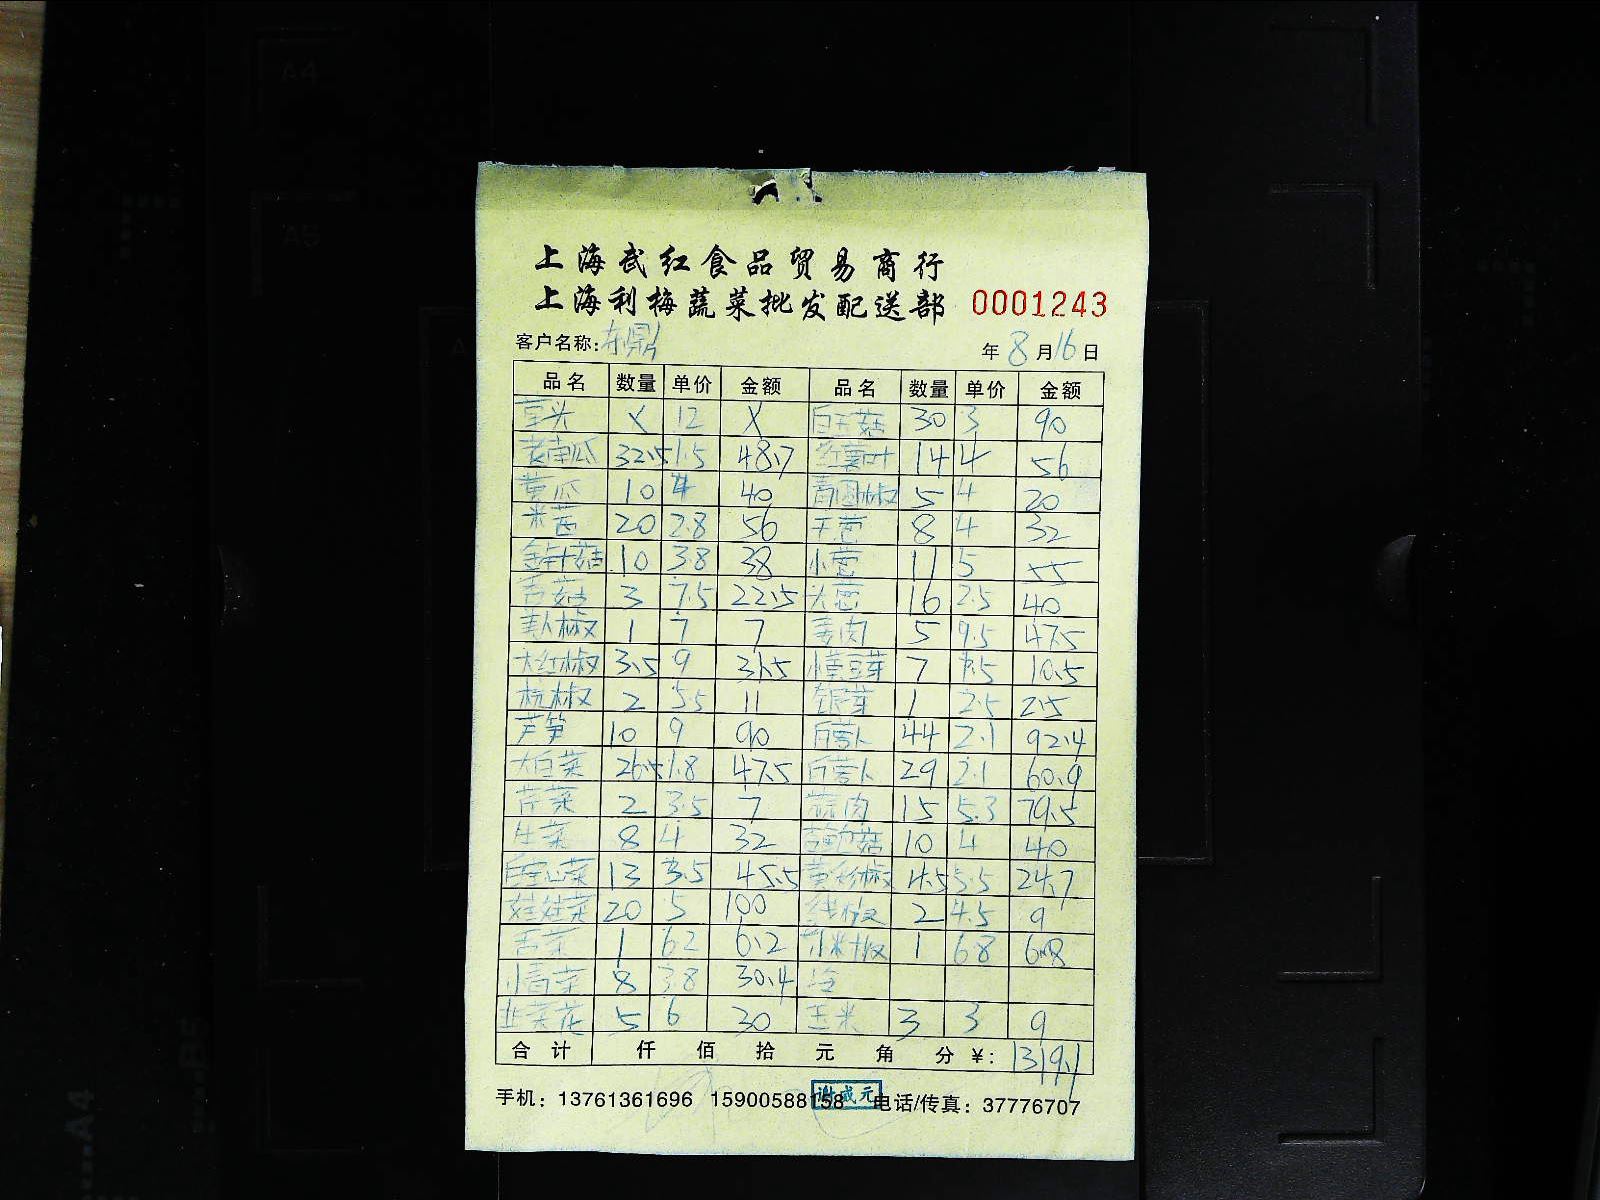 上海武红食品贸易商行
上海利梅蔬菜批发配送部 0001243
客户名称: 东鼎 年 8 月 16 日
品名 数量 单价 金额 品名 数量 单价 金额
芋头 X 12 X 白玉菇 30 3 90
老南瓜 32.5 1.5 48.7 红薯叶 14 4 56
黄瓜 10 4 40 青圆椒 5 4 20
米苋 20 2.8 56 干葱 8 4 32
金针菇 10 3.8 38 小葱 11 5 55
香菇 3 7.5 22.5 大葱 16 2.5 40
美人椒 1 7 7 姜肉 5 9.5 47.5
大红椒 3.5 9 31.5 小黄豆芽 7 1.5 10.5
杭椒 2 5.5 11 银芽 1 2.5 2.5
芦笋 10 9 90 白萝卜 44 2.1 92.4
大白菜 26.5 1.8 47.5 白萝卜 29 2.1 60.9
芹菜 2 3.5 7 蒜肉 15 5.3 79.5
生菜 8 4 32 杏鲍菇 10 4 40
空心菜 13 3.5 45.5 黄彩椒 4.5 5.5 24.7
娃娃菜 20 5 100 线椒 2 4.5 9
1 6.2 6.2 小米椒 1 6.8 6.8
小青菜 8 3.8 30.4
韭菜花 5 6 30 玉米 3 3 9
合计 仟 佰 拾 元 角 分 ¥: 1319.1
手机: 13761361696 15900588158 电话/传真: 37776707
谢成元